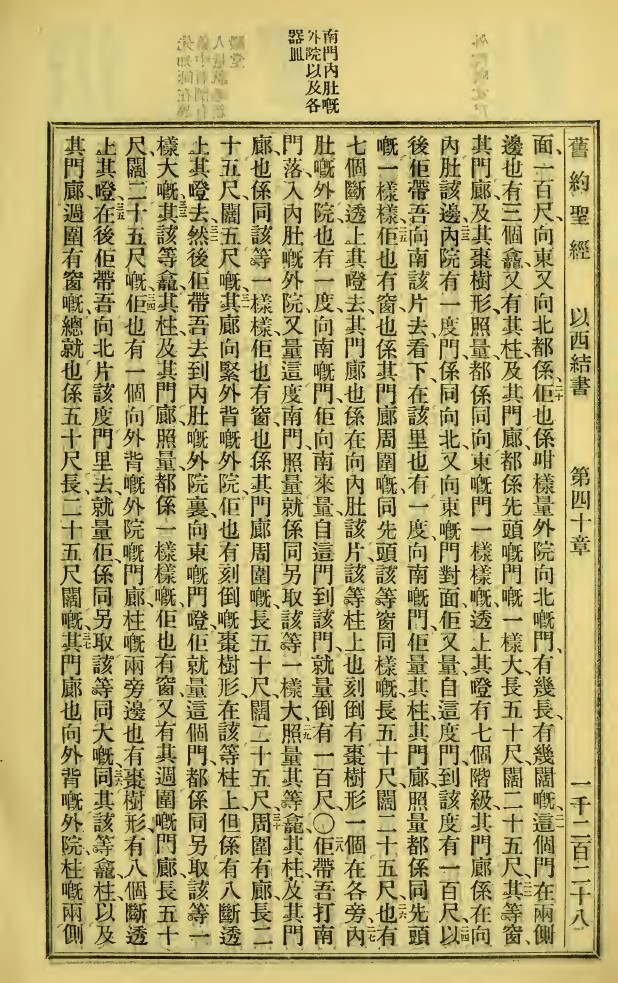 南門內肚嘅
外院以及各
器皿
舊約聖經　以西結書　第四十章　一千二百二十八
面、一百尺、向東又向北都係、二十佢也係咁樣量外院向北嘅門、有幾長、有幾闊嘅、二一這個門在兩側
邊也有三個龕、又有其柱及其門廊、都係先頭嘅門嘅一樣大、長五十尺、闊二十五尺、二二其等窗、
其門廊、及其棗樹形、照量都係同向東嘅門一樣樣嘅、透上其嶝有七個階級、其門廊係在向
內肚該邊、二三內院有一度門係同向北又向東嘅門對面、佢又量自這度門到該度有一百尺、二四以
後佢帶吾向南該片去、看下、在該里也有一度向南嘅門、佢量其柱、其門廊、照量都係同先頭
嘅一樣樣、二五佢也有窗、也係其門廊周圍嘅、同先頭該等窗同樣嘅、長五十尺、闊二十五尺、二六也有
七個斷透上其嶝去、其門廊也係在向內肚該片、該等柱上也刻倒有棗樹形、一個在各旁、二七內
肚嘅外院也有一度向南嘅門、佢向南來量自這門到該門、就量倒有一百尺、〇二八佢帶吾打南
門落入內肚嘅外院、又量這度南門、照量就係同另取該等一樣大、二九照量其等龕、其柱、及其門
廊、也係同該等一樣樣、佢也有窗、也係其門廊周圍嘅、長五十尺、闊二十五尺、三十周圍有廊、長二
十五尺、闊五尺嘅、三一其廊向緊外背嘅外院、佢也有刻倒嘅棗樹形在該等柱上、但係有八斷透
上其嶝去、三二然後佢帶吾去到內肚嘅外院裏向東嘅門嶝、佢就量這個門、都係同另取該等一
樣大嘅、三三其該等龕、其柱、及其門廊、照量都係一樣樣嘅、佢也有窗、又有其週圍嘅門廊、長五十
尺、闊二十五尺嘅、三四佢也有一個向外背嘅外院嘅門廊、柱嘅兩旁邊也有棗樹形、有八個斷透
上其嶝、三五在後佢帶吾向北片該度門里去、就量佢係同另取該等同大嘅、三六同其該等龕、柱、以及
其門廊、週圍有窗嘅、總就也係五十尺長、二十五尺闊嘅、三七其門廊也向外背嘅外院、柱嘅兩側